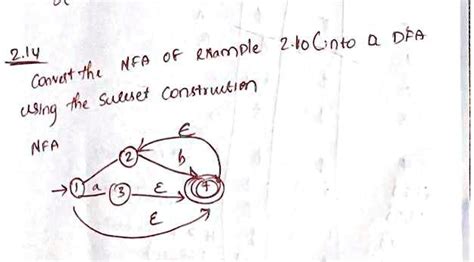 2.14
Convert the NFA of Example 2.10 (into a DFA
using the subset construction
NFA
ε
2
b
1
a
3
ε
4
ε